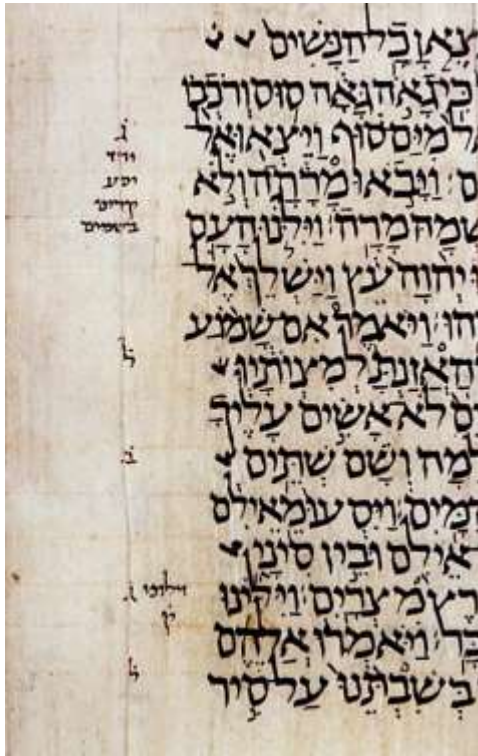 כָּל הַנָּשִׁים
כִּי גָאֹה גָּאָה סוּס וְרֹכְבוֹ
מִיַּם סוּף וַיֵּצְאוּ אֶל
וַיָּבֹאוּ מָרָתָה וְלֹא
שְׁמָהּ מָרָה׃ וַיִּלֹּנוּ הָעָם
יְהוָה עֵץ וַיַּשְׁלֵךְ אֶל
וַיֹּאמֶר אִם שָׁמוֹעַ
הַאֲזַנְתָּ לְמִצְוֹתָיו
לֹא אָשִׂים עָלֶיךָ
וְשָׁם שְׁתֵּים
וַיִּסְעוּ מֵאֵילִם
אֵילִם וּבֵין סִינָי
מִצְרָיִם׃ וַיִּלִּינוּ
וַיֹּאמְרוּ אֲלֵהֶם
בְּשִׁבְתֵּנוּ עַל סִיר
ג
יסע
קדים
בשמים
ל
ב
ג וילונו
ק
ל